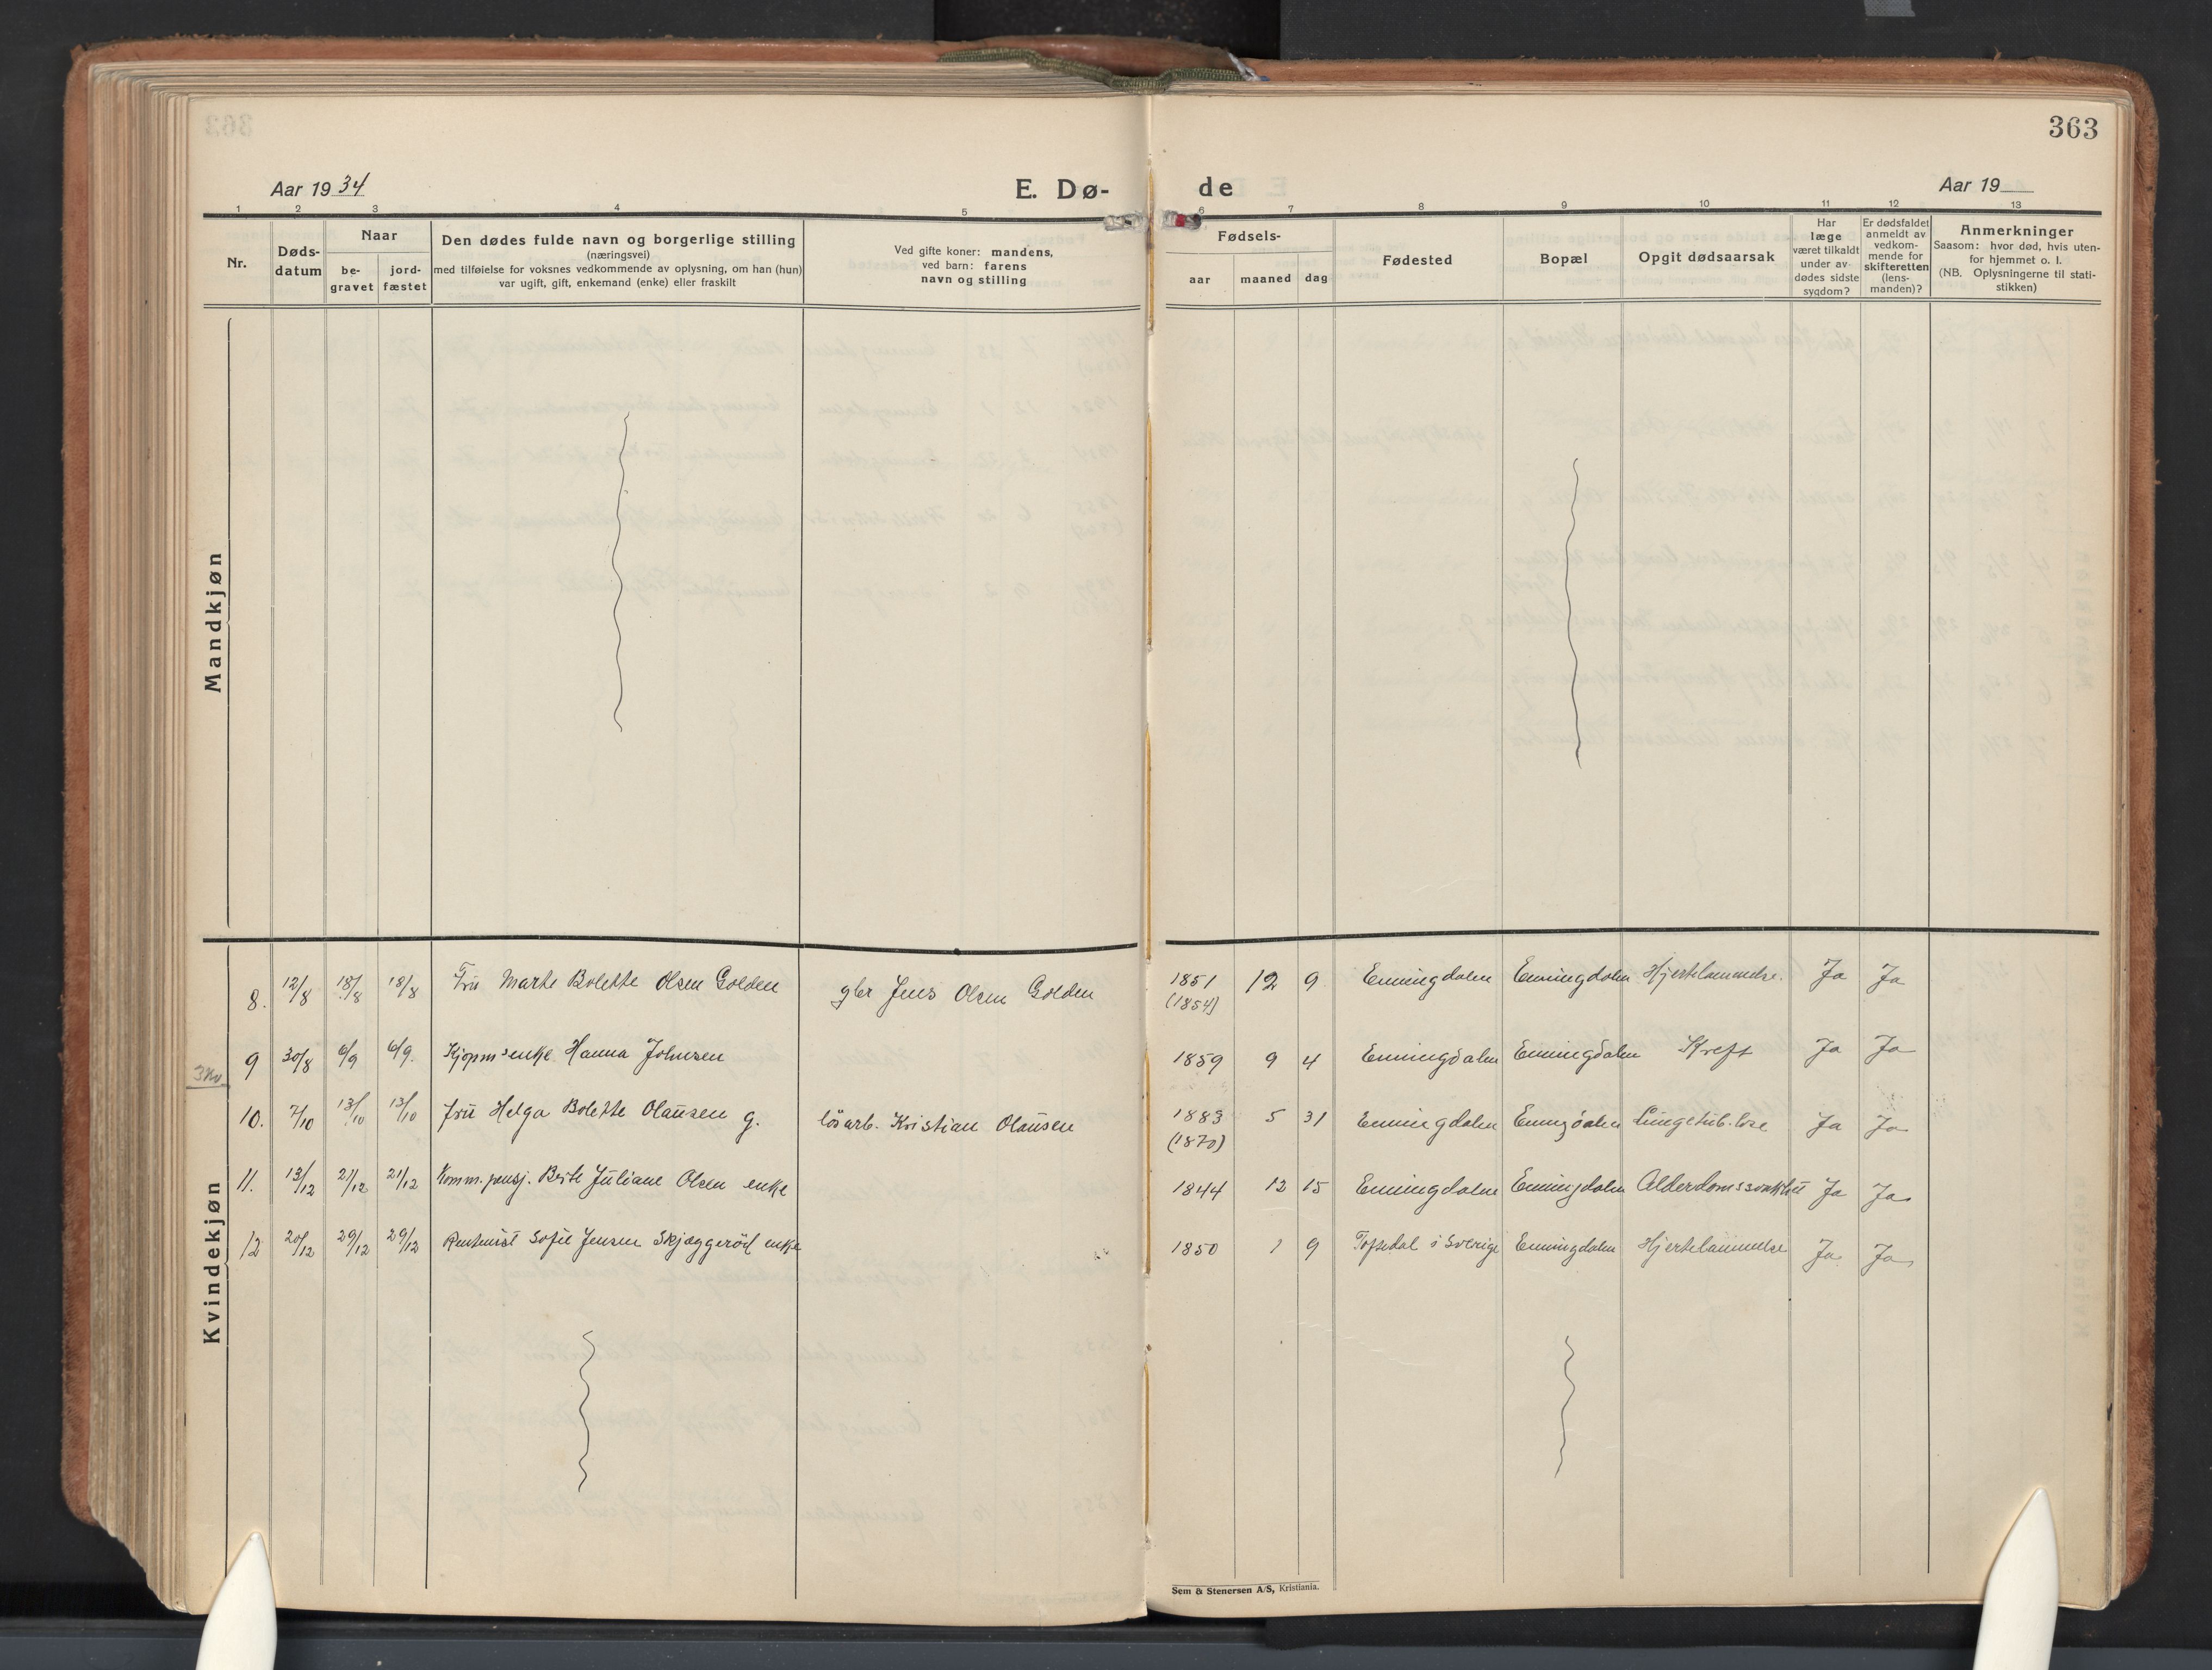 363
Aar 1934
E. Dø-
de
Aar 19
1 2 3 4 5 6 7 8 9 10 11 12 13
Nr.
Døds-
datum
Naar
be-
gravet
jord-
fæstet
Den dødes fulde navn og borgerlige stilling
(næringsvei)
med tilføielse for voksnes vedkommende av oplysning, om han (hun)
var ugift, gift, enkemand (enke) eller fraskilt
Ved gifte koner: mandens,
ved barn: farens
navn og stilling
Fødsels-
aar maaned dag
Fødested
Bopæl
Opgit dødsaarsak
Har
læge
været tilkaldt
under av-
dødes sidste
sygdom?
Er dødsfaldet
anmeldt av
vedkom-
mende for
skifteretten
(lens-
manden)?
Anmerkninger
Saasom: hvor død, hvis uten-
for hjemmet o. l.
(NB. Oplysningerne til stati-
stikken)
Mandkjøn
Kvindekjøn
8. 12/8 18/8 18/8 Fru Marte Bolette Olsen Golden gbr Jens Olsen Golden 1851 12 9 Enningdalen Enningdalen Hjertelammelse. Ja Ja
(1854)
9 30/8 6/9 6/9. Kjøpm's enke Hanna Johnsen 1859 9 4 Enningdalen Enningdalen Kreft Ja Ja
10. 7/10 13/10 13/10 fru Helga Bolette Olausen g. løsarb. Kristian Olausen 1883 5 31 Enningdalen Enngdalen Lungetub.lose Ja Ja
(1870)
11. 13/12 21/12 21/12 Komm. pensj. Berte Juliane Olsen enke 1844 12 15 Enningdalen Enningdalen Ja Ja
12 20/12 29/12 29/12 Rentenist Sofie Jensen Skjæggerød enke 1850 1 9 Toftedal i Sverige Enningdalen Hjertelammelse Ja Ja
Sem & Stenersen A/S, Kristiania.